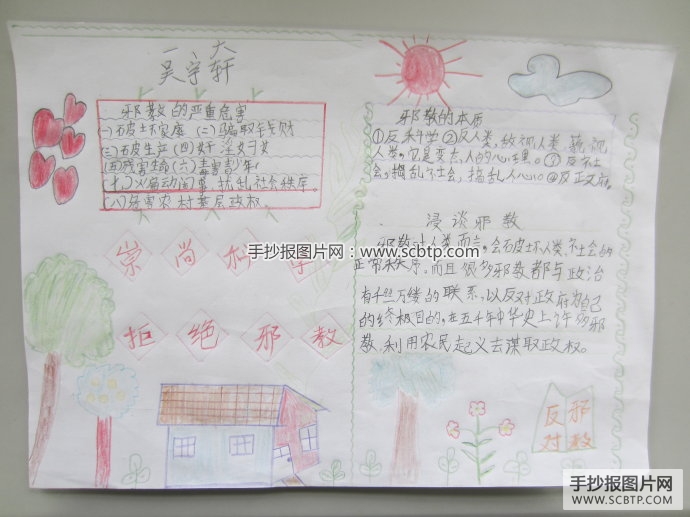 一 六
吴宇轩
邪教的严重危害
(一)破坏家庭 (二)骗取钱财
(三)破坏生产 (四)奸淫妇女
(五)残害生命 (六)毒害青少年
(七)煽动闹事,扰乱社会秩序
(八)危害农村基层政权.
崇尚科学
拒绝邪教
邪教的本质
①反科学②反人类,敌视人类,蔑视
人类,它是变态人的心理。③反社
会,捣乱社会,搞乱人心。④反政府.
浸谈邪教
邪教对人类而言,会破坏人类、社会的
正常秩序,而且很多邪教都与政治
有千丝万缕的联系,以反对政府为自己
的终极目的,在五千年中华史上许多邪
教,利用农民起义去谋取政权。
反对
邪教
手抄报图片网:www.scbtp.com
手抄报图片网
WWW.SCBTP.COM